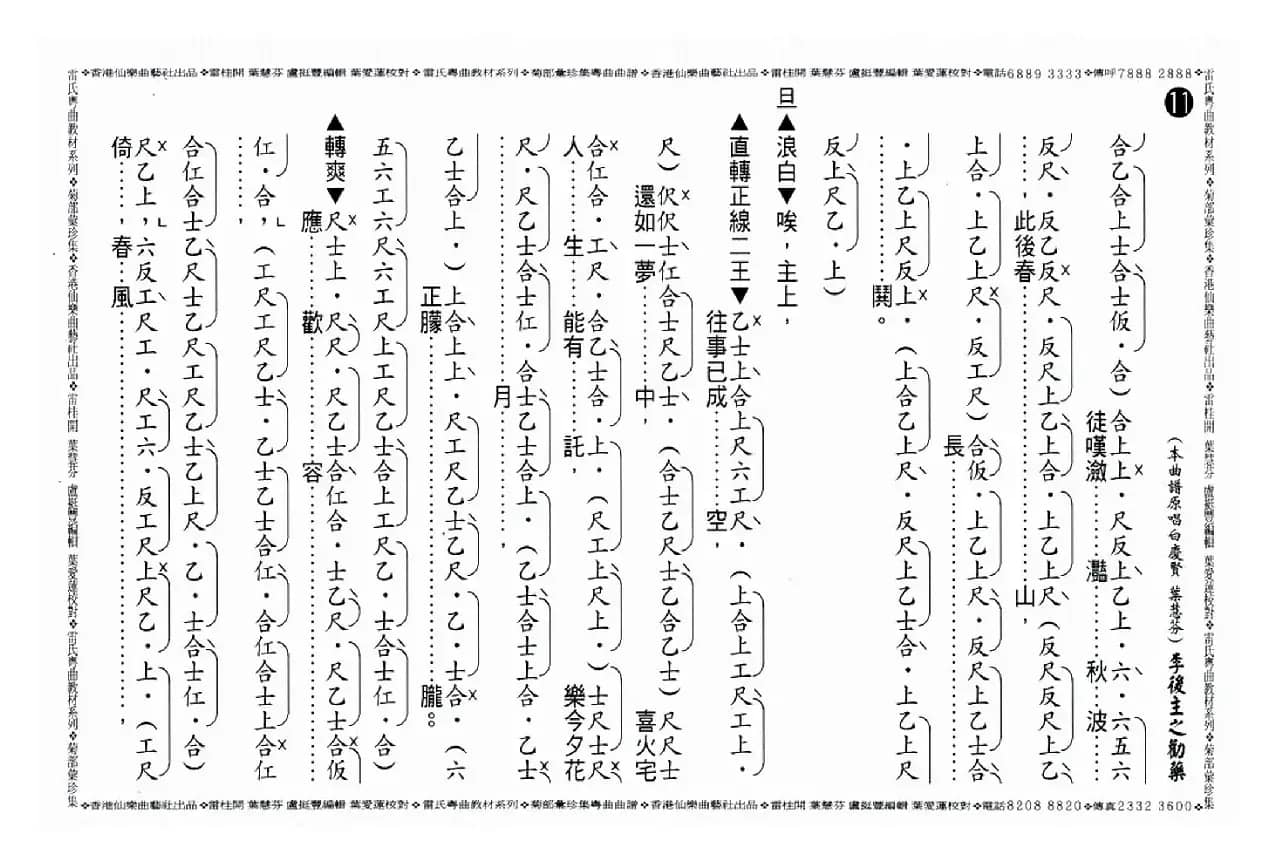 ❖香港仙樂曲藝社出品❖雷桂開 葉慧芬 盧挺豐編輯 葉愛蓮校對❖雷氏粵曲教材系列❖菊部彙珍集粵曲曲譜❖香港仙樂曲藝社出品❖雷桂開 葉慧芬 盧挺豐編輯 葉愛蓮校對❖電話6889 3333❖傳呼7888 2888❖
雷氏粵曲教材系列❖菊部彙珍集❖香港仙樂曲藝社出品❖雷桂開 葉慧芬 盧挺豐編輯 葉愛蓮校對❖雷氏粵曲教材系列❖菊部彙珍集
11
(本曲譜原唱白慶賢 葉慧芬)李後主之勸藥
合乙合上士合士仮•合)合上上x•尺反上乙上•六•六五六
徒嘆瀲………灩………秋…波
反尺•反乙反x尺•反尺上乙上合•上乙上尺(反尺反尺上乙
……,此後春………………………………山,
上合•上乙上尺x•反工尺)合仮•上乙上尺•反尺上乙士合
長……………………………………
•上乙上尺反上x•(上合乙上尺•反尺上乙士合•上乙上尺
………………鬪。
反上尺乙•上)
旦▲浪白▼唉,主上,
▲直轉正線二王▼乙x士上合上尺六工尺•(上合上工尺工上•
往事已成………空,
尺)伬x伬士仜合士尺乙士•(合士乙尺士乙合乙士)尺尺士
還如一夢………中,喜火宅
合x仜合•工尺•合乙士合•上•(尺工上尺上•)士尺士尺x
人………生…能有………託,樂今夕花
尺•尺乙士合士仜•合士乙士合上•(乙士合士上合•乙士x
………………………月………………,
乙士合上•)上合上上•尺工尺乙士乙尺•乙•士合x•(六
正朦…………………………………朧。
五六工六尺六工尺上工尺乙士合上工尺乙•士合士仜•合)
▲轉爽▼尺x士上•尺尺•尺乙士合仜合•士乙尺•尺乙士合x仮
應………歡…………容…………………………
仜•合,ㄥ(工尺工尺乙士•乙士乙士合仜•合仜合士上合x仜
……,
合仜合士乙尺士乙尺工尺乙士乙上尺•乙•士合士仜•合)
尺x乙上,ㄥ六反工尺工•尺工六•反工尺上x尺乙•上•(工尺
倚……,春…風………………………………………,
雷氏粵曲教材系列❖菊部彙珍集❖香港仙樂曲藝社出品❖雷桂開 葉慧芬 盧挺豐編輯 葉愛蓮校對❖雷氏粵曲教材系列❖菊部彙珍集
❖香港仙樂曲藝社出品❖雷桂開 葉慧芬 盧挺豐編輯 葉愛蓮校對❖雷氏粵曲教材系列❖菊部彙珍集粵曲曲譜❖香港仙樂曲藝社出品❖雷桂開 葉慧芬 盧挺豐編輯 葉愛蓮校對❖電話8208 8820❖傳真2332 3600❖